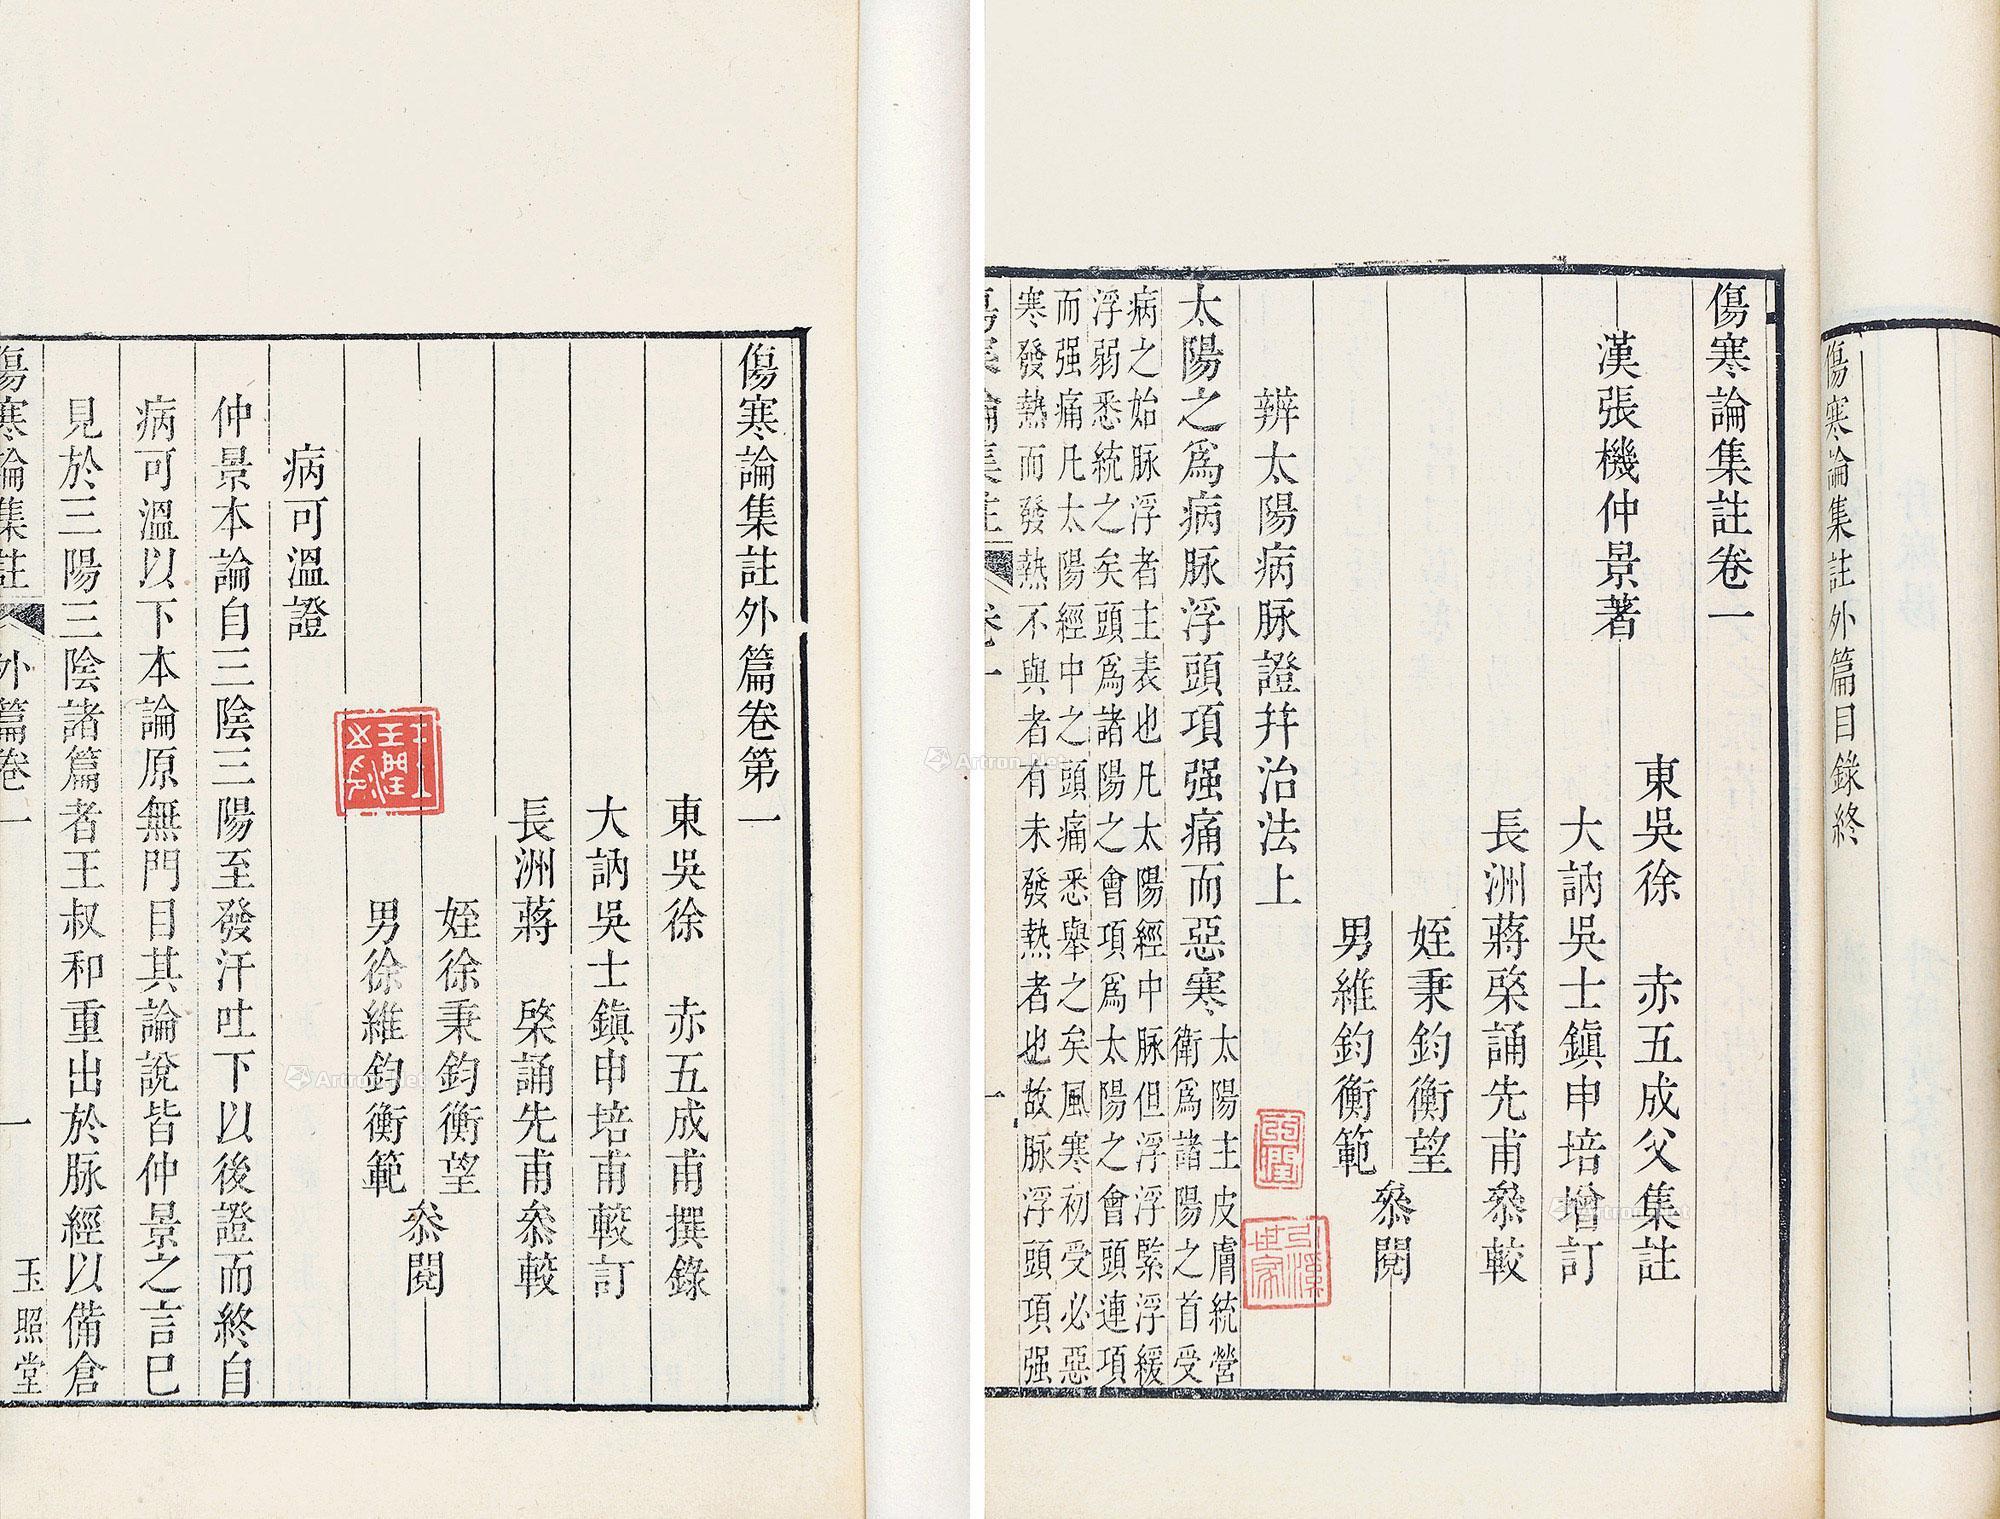 傷寒論集註外篇目錄終
傷寒論集註卷一
漢張機仲景著
東吳徐 赤五成父集註
大訥吳士鎭申培增訂
長洲蔣棨誦先甫叅較
姪秉鈞衡望
男維鈞衡範
叅閱
辨太陽病脉證幷治法上
太陽之爲病脉浮頭項强痛而惡寒
太陽主皮膚統營
衛爲諸陽之首受
病之始脉浮者主表也凡太陽經中脉但浮浮緊浮緩
浮弱悉統之矣頭爲諸陽之會項爲太陽之會頭連項
而强痛凡太陽經中之頭痛悉舉之矣風寒初受必惡
寒發熱而發熱不與者有未發熱者也故脉浮頭項强
傷寒論集註 卷一 一
傷寒論集註外篇卷第一
東吳徐 赤五成甫撰錄
大訥吳士鎭申培甫較訂
長洲蔣 棨誦先甫叅較
姪徐秉鈞衡望
男徐維鈞衡範
叅閱
病可溫證
仲景本論自三陰三陽至發汗吐下以後證而終自
病可溫以下本論原無門目其論說皆仲景之言巳
見於三陽三陰諸篇者王叔和重出於脉經以備倉
傷寒論集註 外篇卷一 一 玉照堂
Artron.Net
Artron.Net
Artron.Net